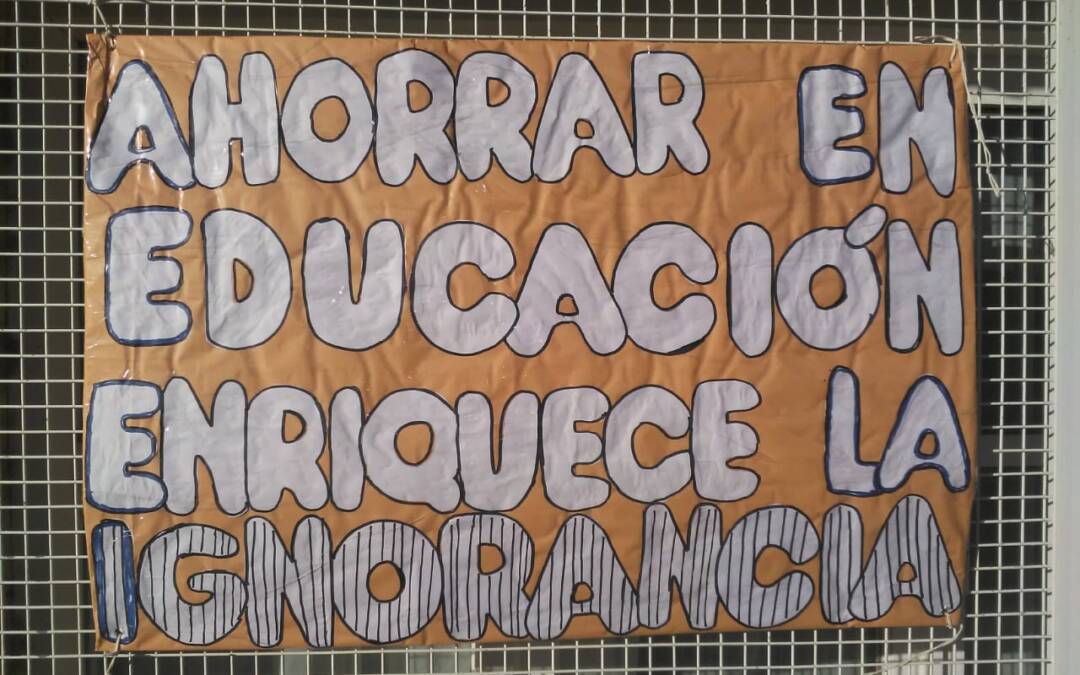 AHORRAR EN
EDUCACIÓN
ENRIQUECE LA
IGNORANCIA